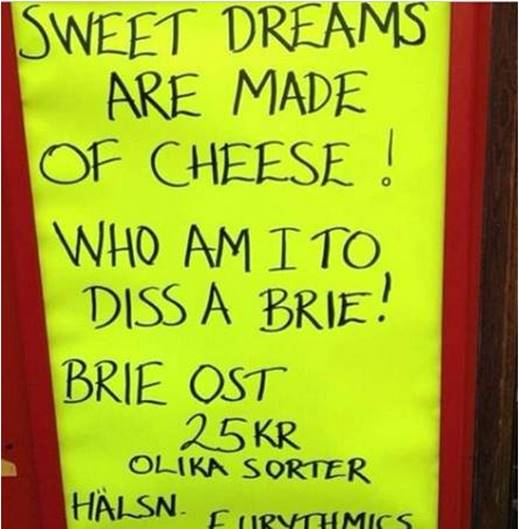 SWEET DREAMS
ARE MADE
OF CHEESE !
WHO AM I TO
DISS A BRIE!
BRIE OST
25 KR
OLIKA SORTER
HÄLSN.
EURYTHMICS